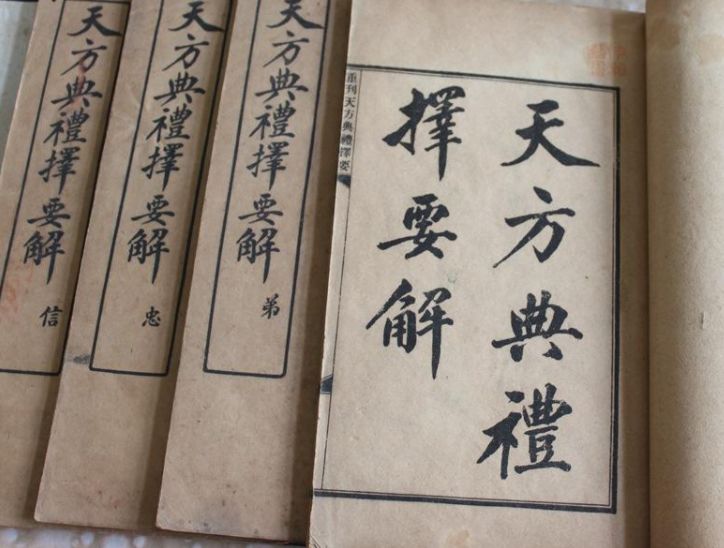 天方典禮擇要解
信
天方典禮擇要解
忠
天方典禮擇要解
弟
重刊天方典禮擇要
天方典禮
擇要解